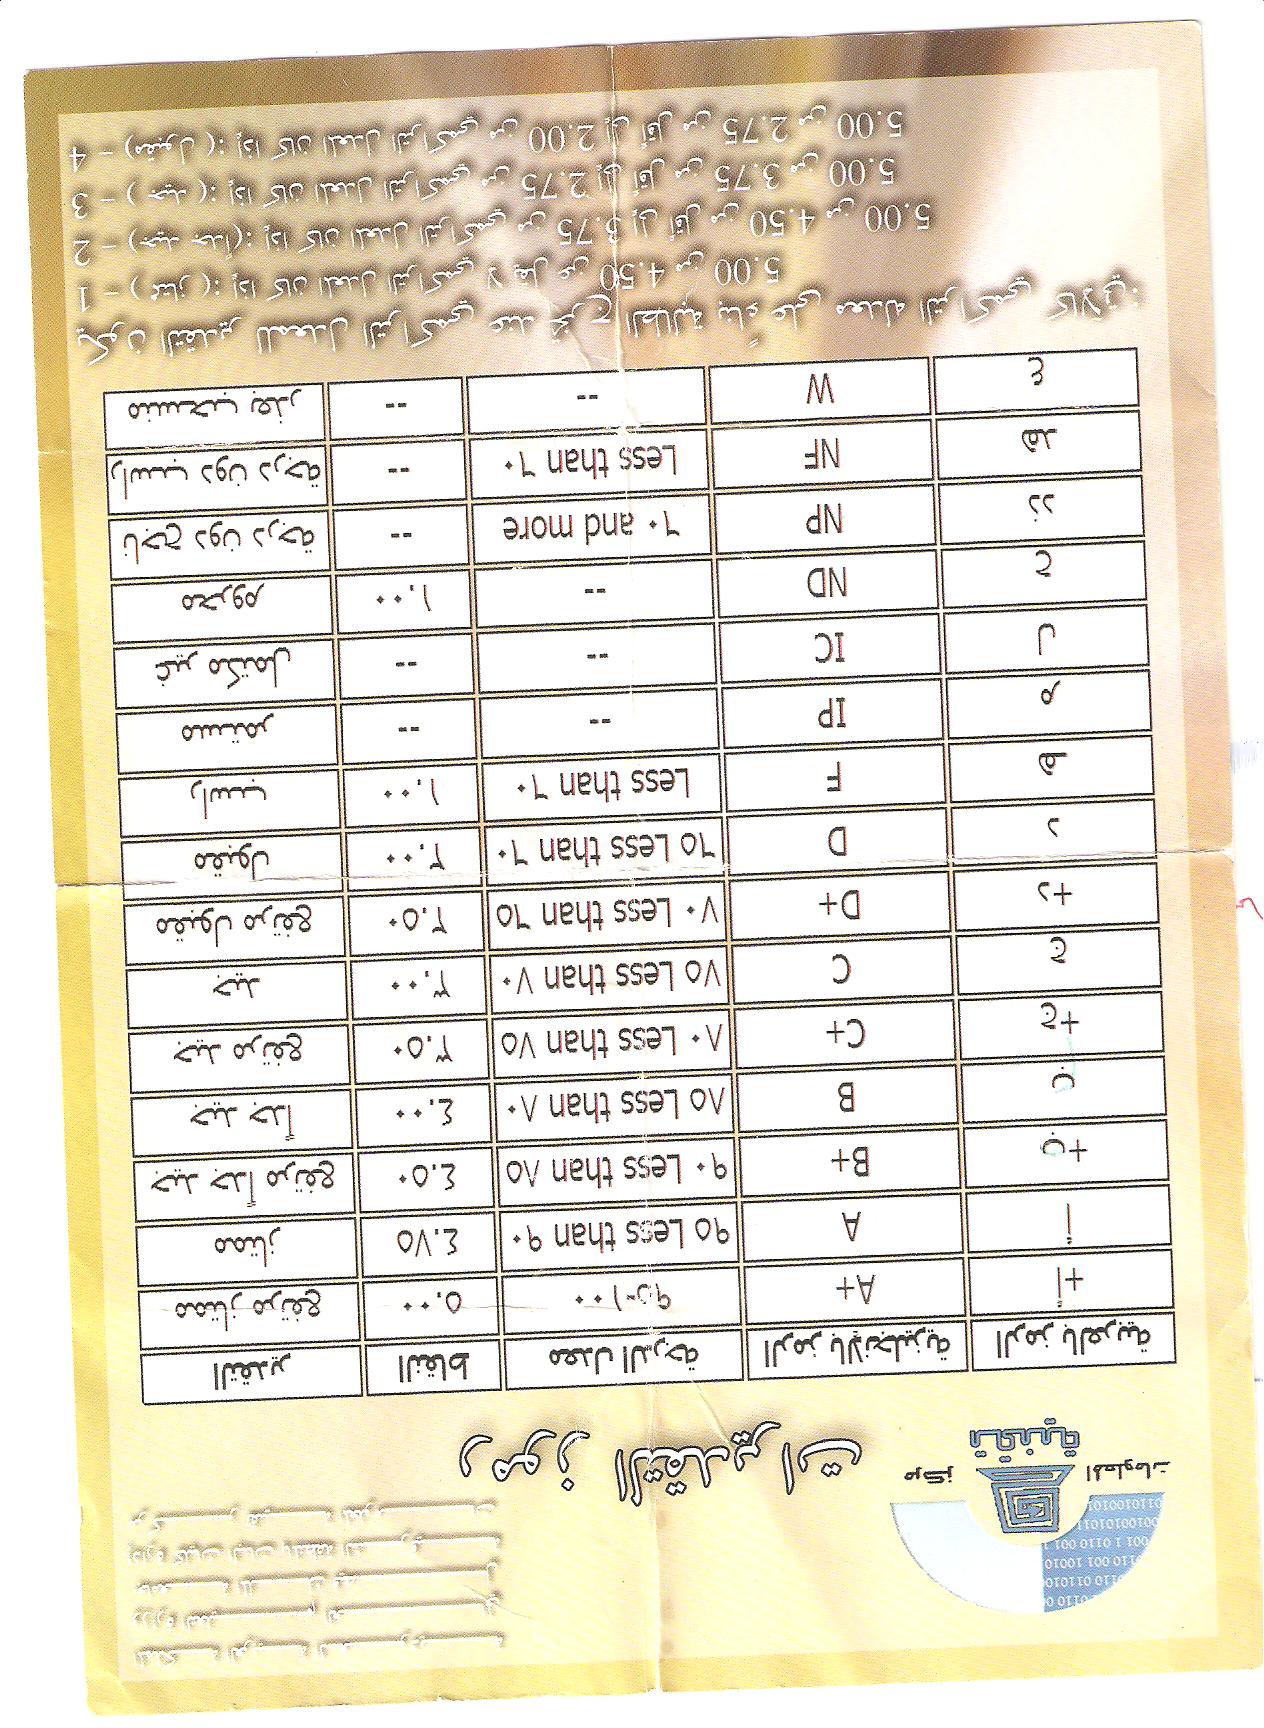 المملكة العربية السعودية
وزارة التعليم العالي
جامعة الملك فيصل
كليات البنات
مركز تقنية المعلومات
مركز المعلومات
تقنية
رموز التقديرات
التقدير النقاط معدل الدرجة الرمز بالإنجليزية الرمز بالعربية
ممتاز مرتفع ٥,٠٠ ٩٥-١٠٠ A+ أ+
ممتاز ٤,٧٥ ٩٠ Less than ٩٥ A أ
جيد جداً مرتفع ٤,٥٠ ٨٥ Less than ٩٠ B+ ب+
جيد جداً ٤,٠٠ ٨٠ Less than ٨٥ B ب
جيد مرتفع ٣,٥٠ ٧٥ Less than ٨٠ C+ ج+
جيد ٣,٠٠ ٧٠ Less than ٧٥ C ج
مقبول مرتفع ٢,٥٠ ٦٥ Less than ٧٠ D+ د+
مقبول ٢,٠٠ ٦٠ Less than ٦٥ D د
راسب ١,٠٠ Less than ٦٠ F هـ
مستمر -- -- IP م
غير مكتمل -- -- IC ل
محروم ١,٠٠ -- ND ح
ناجح دون درجة -- ٦٠ and more NP ند
راسب دون درجة -- Less than ٦٠ NF هد
منسحب بعذر -- -- W ع
يكون التقدير للمعدل التراكمي عند تخرج الطالبة بناءً على معدله التراكمي كالآتي:
1 – ( ممتاز ) : إذا كان المعدل التراكمي لا يقل عن 4.50 من 5.00
2 – (جيد جداً) : إذا كان المعدل التراكمي من 3.75 إلى أقل من 4.50 من 5.00
3 – ( جيد ) : إذا كان المعدل التراكمي من 2.75 إلى أقل من 3.75 من 5.00
4 – (مقبول ) : إذا كان المعدل التراكمي من 2.00 إلى أقل من 2.75 من 5.00